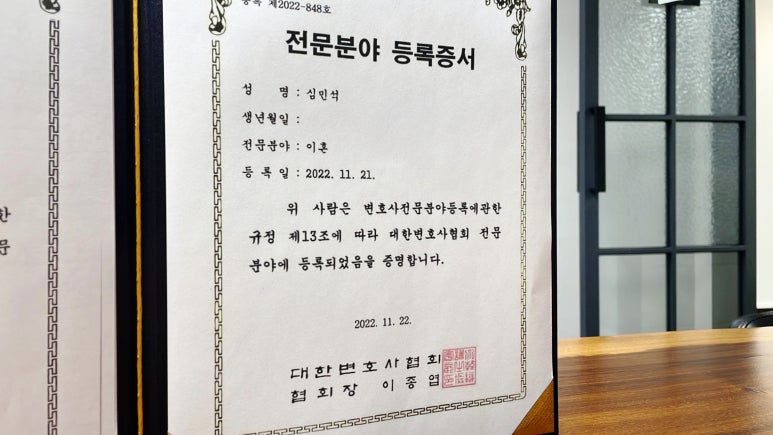 등록 제2022-848호
전문분야 등록증서
성 명 : 심민석
생년월일 :
전문분야 : 이혼
등 록 일 : 2022. 11. 21.
위 사람은 변호사전문분야등록에관한
규정 제13조에 따라 대한변호사협회 전문
분야에 등록되었음을 증명합니다.
2022. 11. 22.
대한변호사협회
협회장 이종엽
한
문